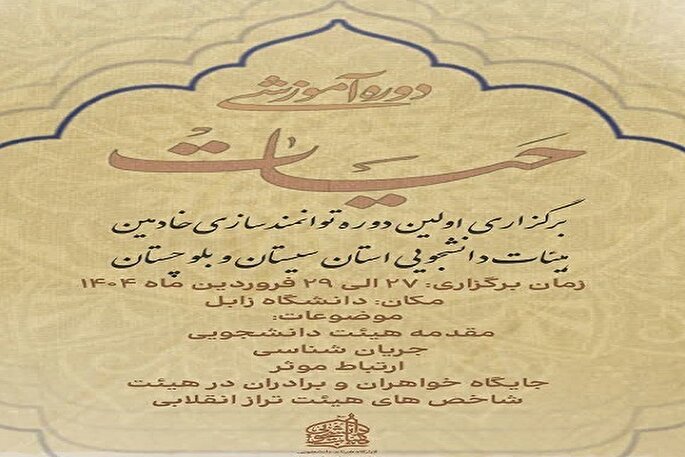 دوره آموزشی
حیات
برگزاری اولین دوره توانمندسازی خادمین
هیئات دانشجویی استان سیستان و بلوچستان
زمان برگزاری: ۲۷ الی ۲۹ فروردین ماه ۱۴۰۴
مکان: دانشگاه زابل
موضوعات:
مقدمه هیئت دانشجویی
جریان شناسی
ارتباط موثر
جایگاه خواهران و برادران در هیئت
شاخص های هیئت تراز انقلابی